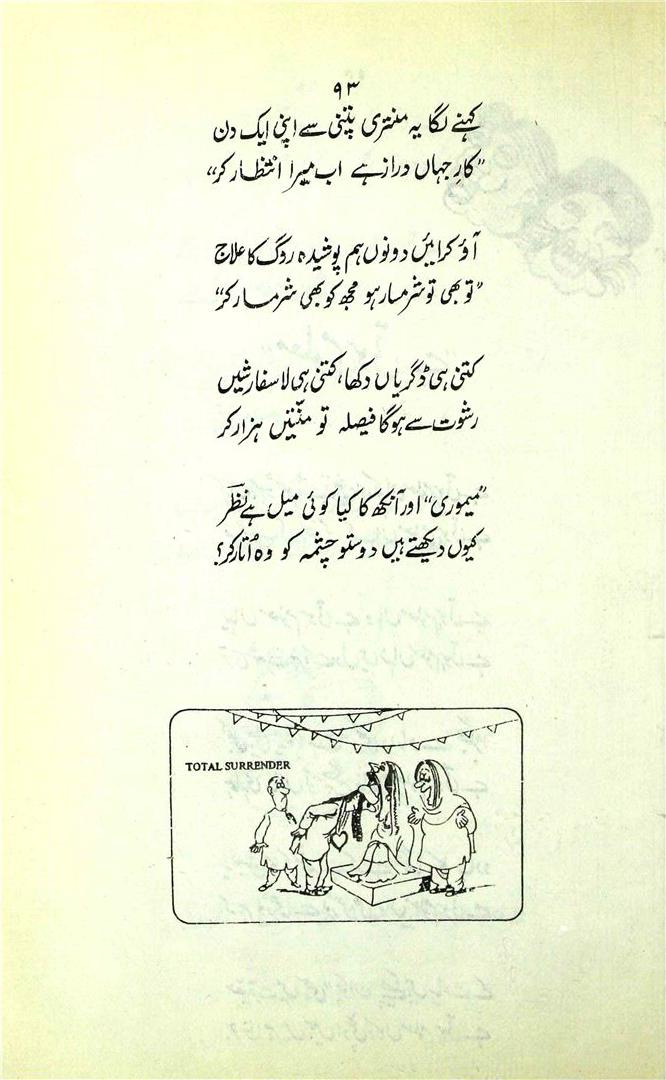 ۹۳
کہنے لگا یہ منتری پتنی سے اپنی ایک دن
”کارِ جہاں دراز ہے اب میرا انتظار کر“
آؤ کرائیں دونوں ہم پوشیدہ روگ کا علاج
”تو بھی تو شرمسار ہو مجھ کو بھی شرمسار کر“
کتنی ہی ڈگریاں دکھا، کتنی ہی لا سفارشیں
رشوت سے ہوگا فیصلہ تو منّتیں ہزار کر
”میموری“ اور آنکھ کا کیا کوئی میل ہے نظرؔ
کیوں دیکھتے ہیں دوستو چشمہ کو وہ اُتار کر؟
TOTAL SURRENDER